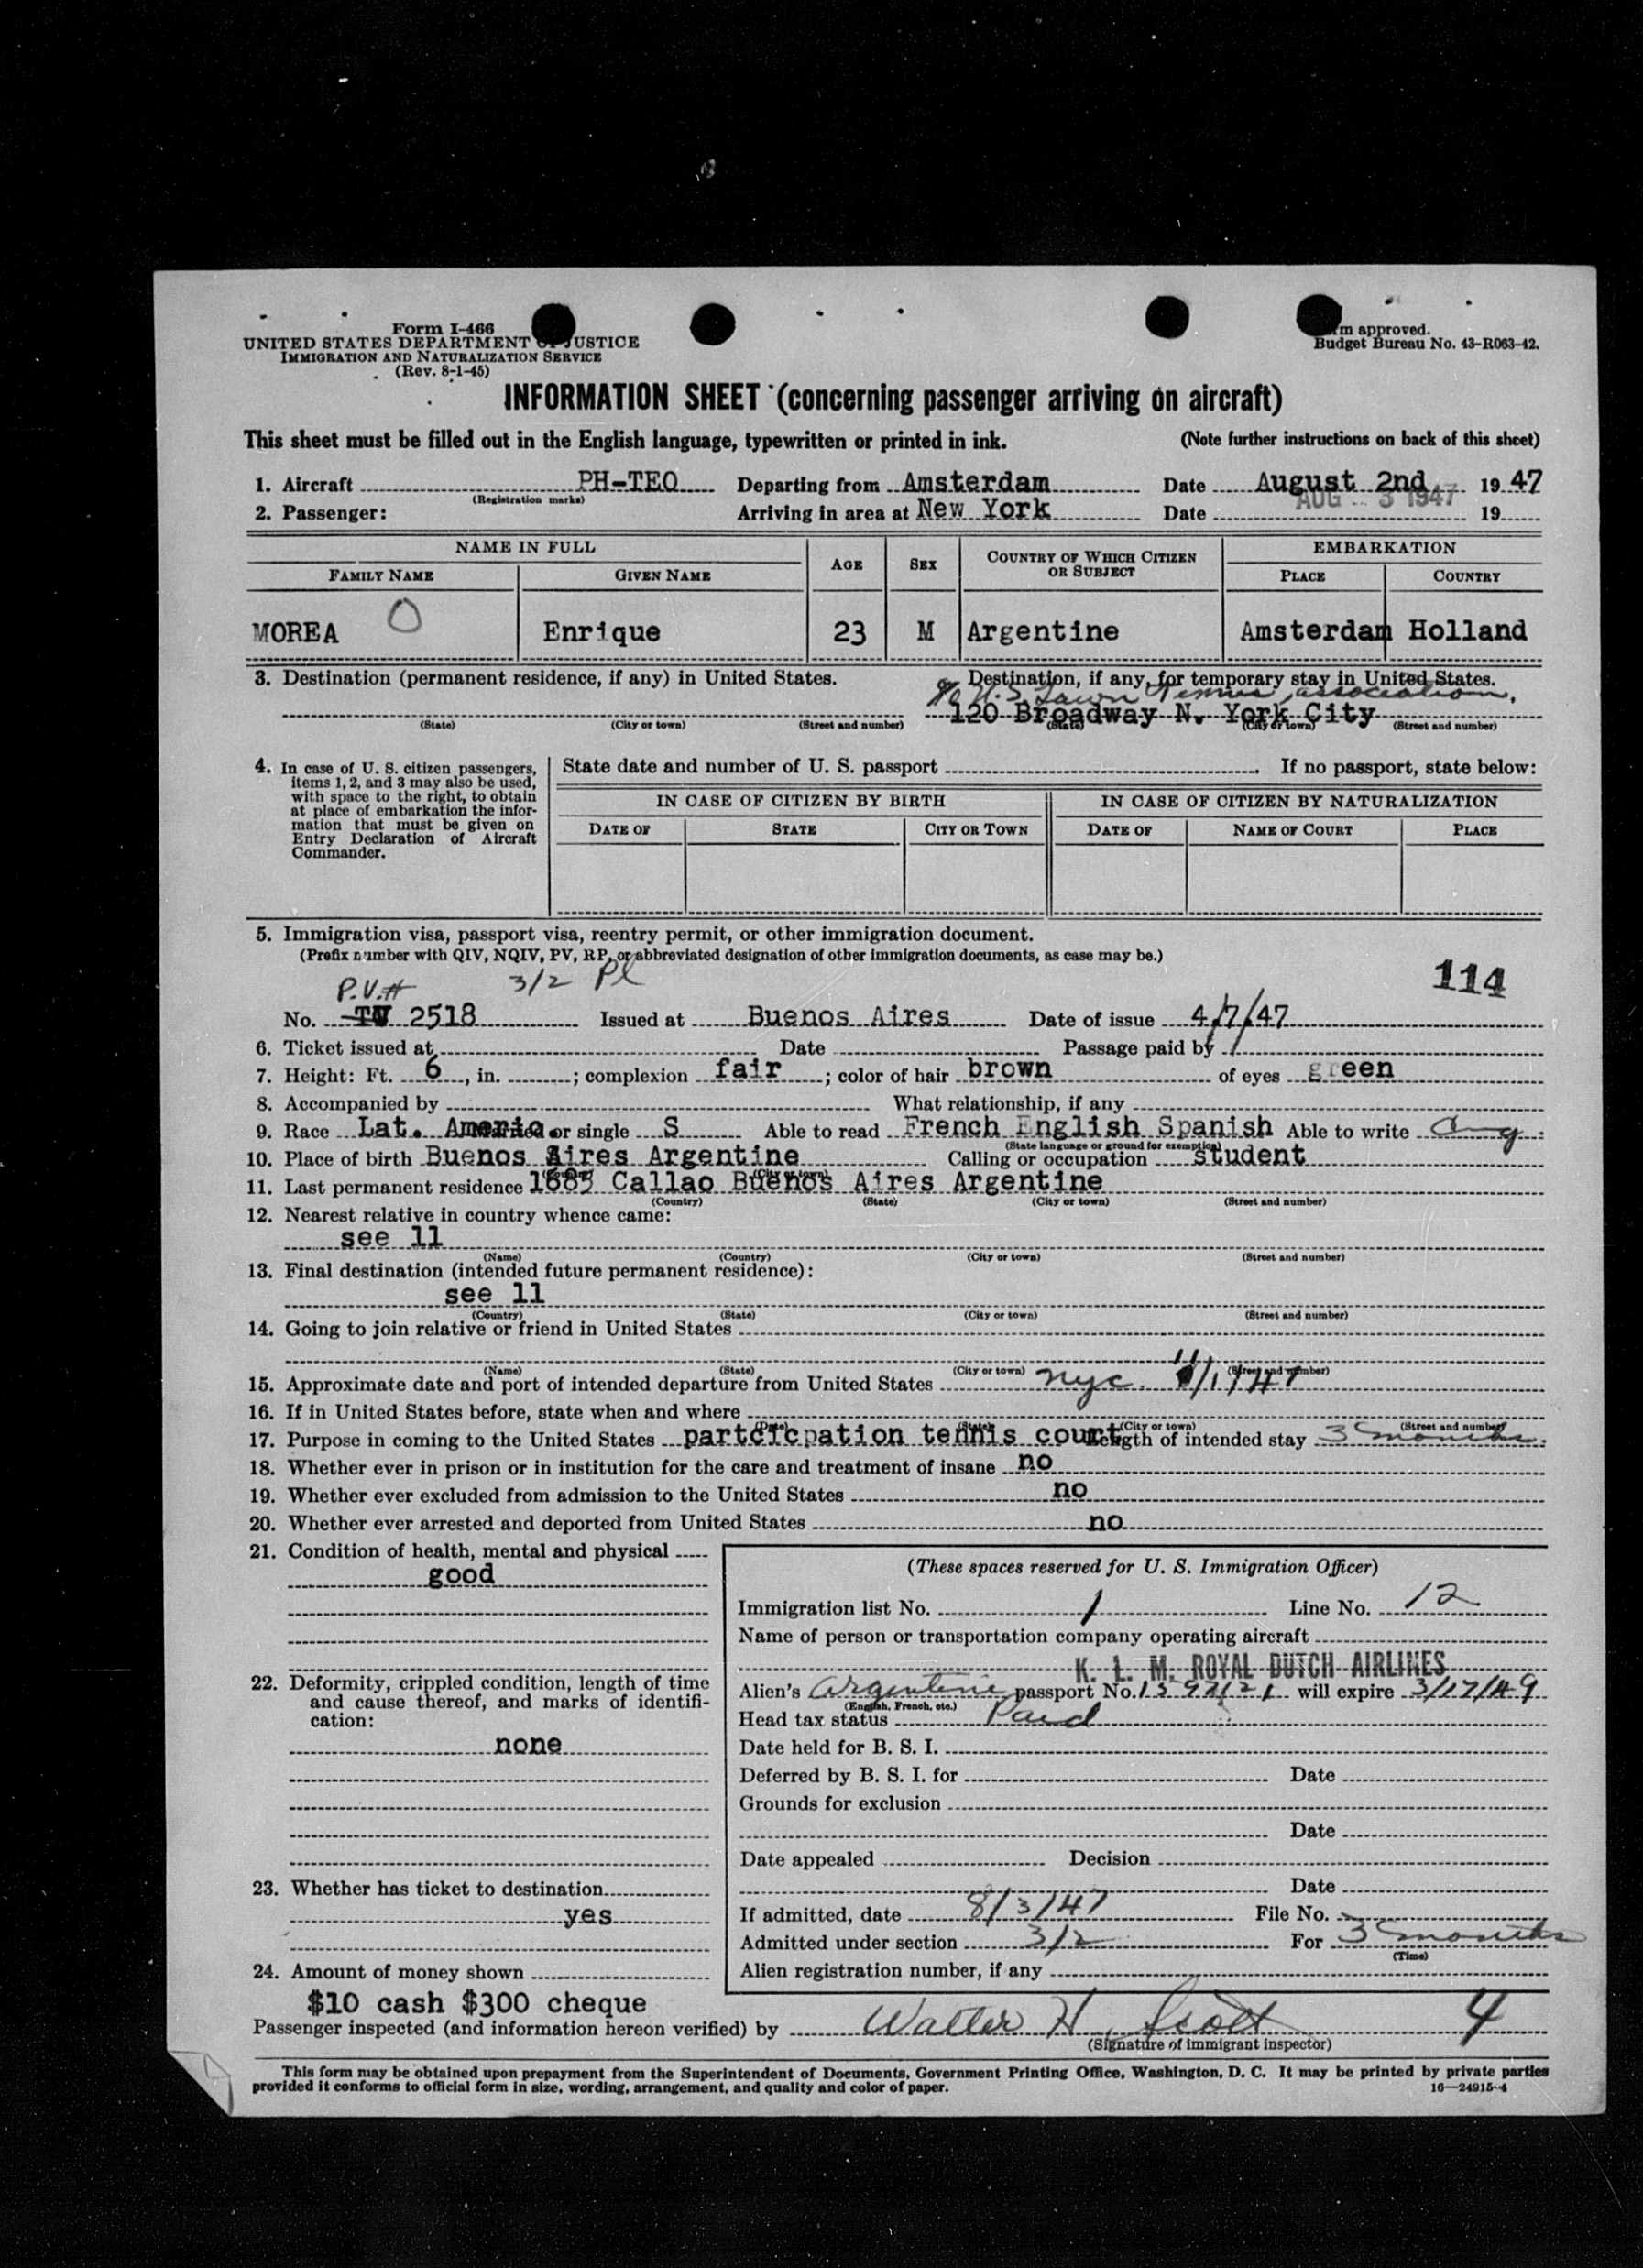 Form I-466
UNITED STATES DEPARTMENT OF JUSTICE
IMMIGRATION AND NATURALIZATION SERVICE
(Rev. 8-1-45)
m approved.
Budget Bureau No. 43-R063-42.
INFORMATION SHEET (concerning passenger arriving on aircraft)
This sheet must be filled out in the English language, typewritten or printed in ink. (Note further instructions on back of this sheet)
1. Aircraft PH-TEO Departing from Amsterdam Date August 2nd 1947
(Registration marks)
2. Passenger: Arriving in area at New York Date AUG 3 1947 19
NAME IN FULL AGE SEX COUNTRY OF WHICH CITIZEN OR SUBJECT EMBARKATION
FAMILY NAME GIVEN NAME PLACE COUNTRY
MOREA O Enrique 23 M Argentine Amsterdam Holland
3. Destination (permanent residence, if any) in United States. Destination, if any, for temporary stay in United States.
℅ U.S. Lawn Tennis association,
120 Broadway N. York City
(State) (City or town) (Street and number) (State) (City or town) (Street and number)
4. In case of U. S. citizen passengers, items 1, 2, and 3 may also be used, with space to the right, to obtain at place of embarkation the information that must be given on Entry Declaration of Aircraft Commander.
State date and number of U. S. passport If no passport, state below:
IN CASE OF CITIZEN BY BIRTH IN CASE OF CITIZEN BY NATURALIZATION
DATE OF STATE CITY OR TOWN DATE OF NAME OF COURT PLACE
5. Immigration visa, passport visa, reentry permit, or other immigration document.
(Prefix number with QIV, NQIV, PV, RP, or abbreviated designation of other immigration documents, as case may be.)
P.V.# 3/2 Pl 114
No. TV 2518 Issued at Buenos Aires Date of issue 4/7/47
6. Ticket issued at Date Passage paid by
7. Height: Ft. 6, in. ; complexion fair; color of hair brown of eyes green
8. Accompanied by What relationship, if any
9. Race Lat. Americ. or single S Able to read French English Spanish Able to write
(State language or ground for exemption)
10. Place of birth Buenos Aires Argentine Calling or occupation student
11. Last permanent residence 1685 Callao Buenos Aires Argentine
(Country) (State) (City or town) (Street and number)
12. Nearest relative in country whence came:
see 11
(Name) (Country) (City or town) (Street and number)
13. Final destination (intended future permanent residence):
see 11
(Country) (State) (City or town) (Street and number)
14. Going to join relative or friend in United States
(Name) (State) (City or town) (Street and number)
15. Approximate date and port of intended departure from United States nyc. 11/1/47
16. If in United States before, state when and where
(Date) (State) (City or town) (Street and number)
17. Purpose in coming to the United States partcicpation tennis court Length of intended stay 3 months.
18. Whether ever in prison or in institution for the care and treatment of insane no
19. Whether ever excluded from admission to the United States no
20. Whether ever arrested and deported from United States no
21. Condition of health, mental and physical
good
22. Deformity, crippled condition, length of time and cause thereof, and marks of identification:
none
23. Whether has ticket to destination
yes
24. Amount of money shown
$10 cash $300 cheque
(These spaces reserved for U. S. Immigration Officer)
Immigration list No. 1 Line No. 12
Name of person or transportation company operating aircraft
K. L. M. ROYAL DUTCH AIRLINES
Alien's Argentine passport No. will expire 3/17/49
(English, French, etc.)
Head tax status Paid
Date held for B. S. I.
Deferred by B. S. I. for Date
Grounds for exclusion
Date
Date appealed Decision
Date
If admitted, date 8/3/47 File No.
Admitted under section 3/2 For 3 months
(Time)
Alien registration number, if any
Passenger inspected (and information hereon verified) by Walter H. Scott 4
(Signature of immigrant inspector)
This form may be obtained upon prepayment from the Superintendent of Documents, Government Printing Office, Washington, D. C. It may be printed by private parties
provided it conforms to official form in size, wording, arrangement, and quality and color of paper. 16—24915-4